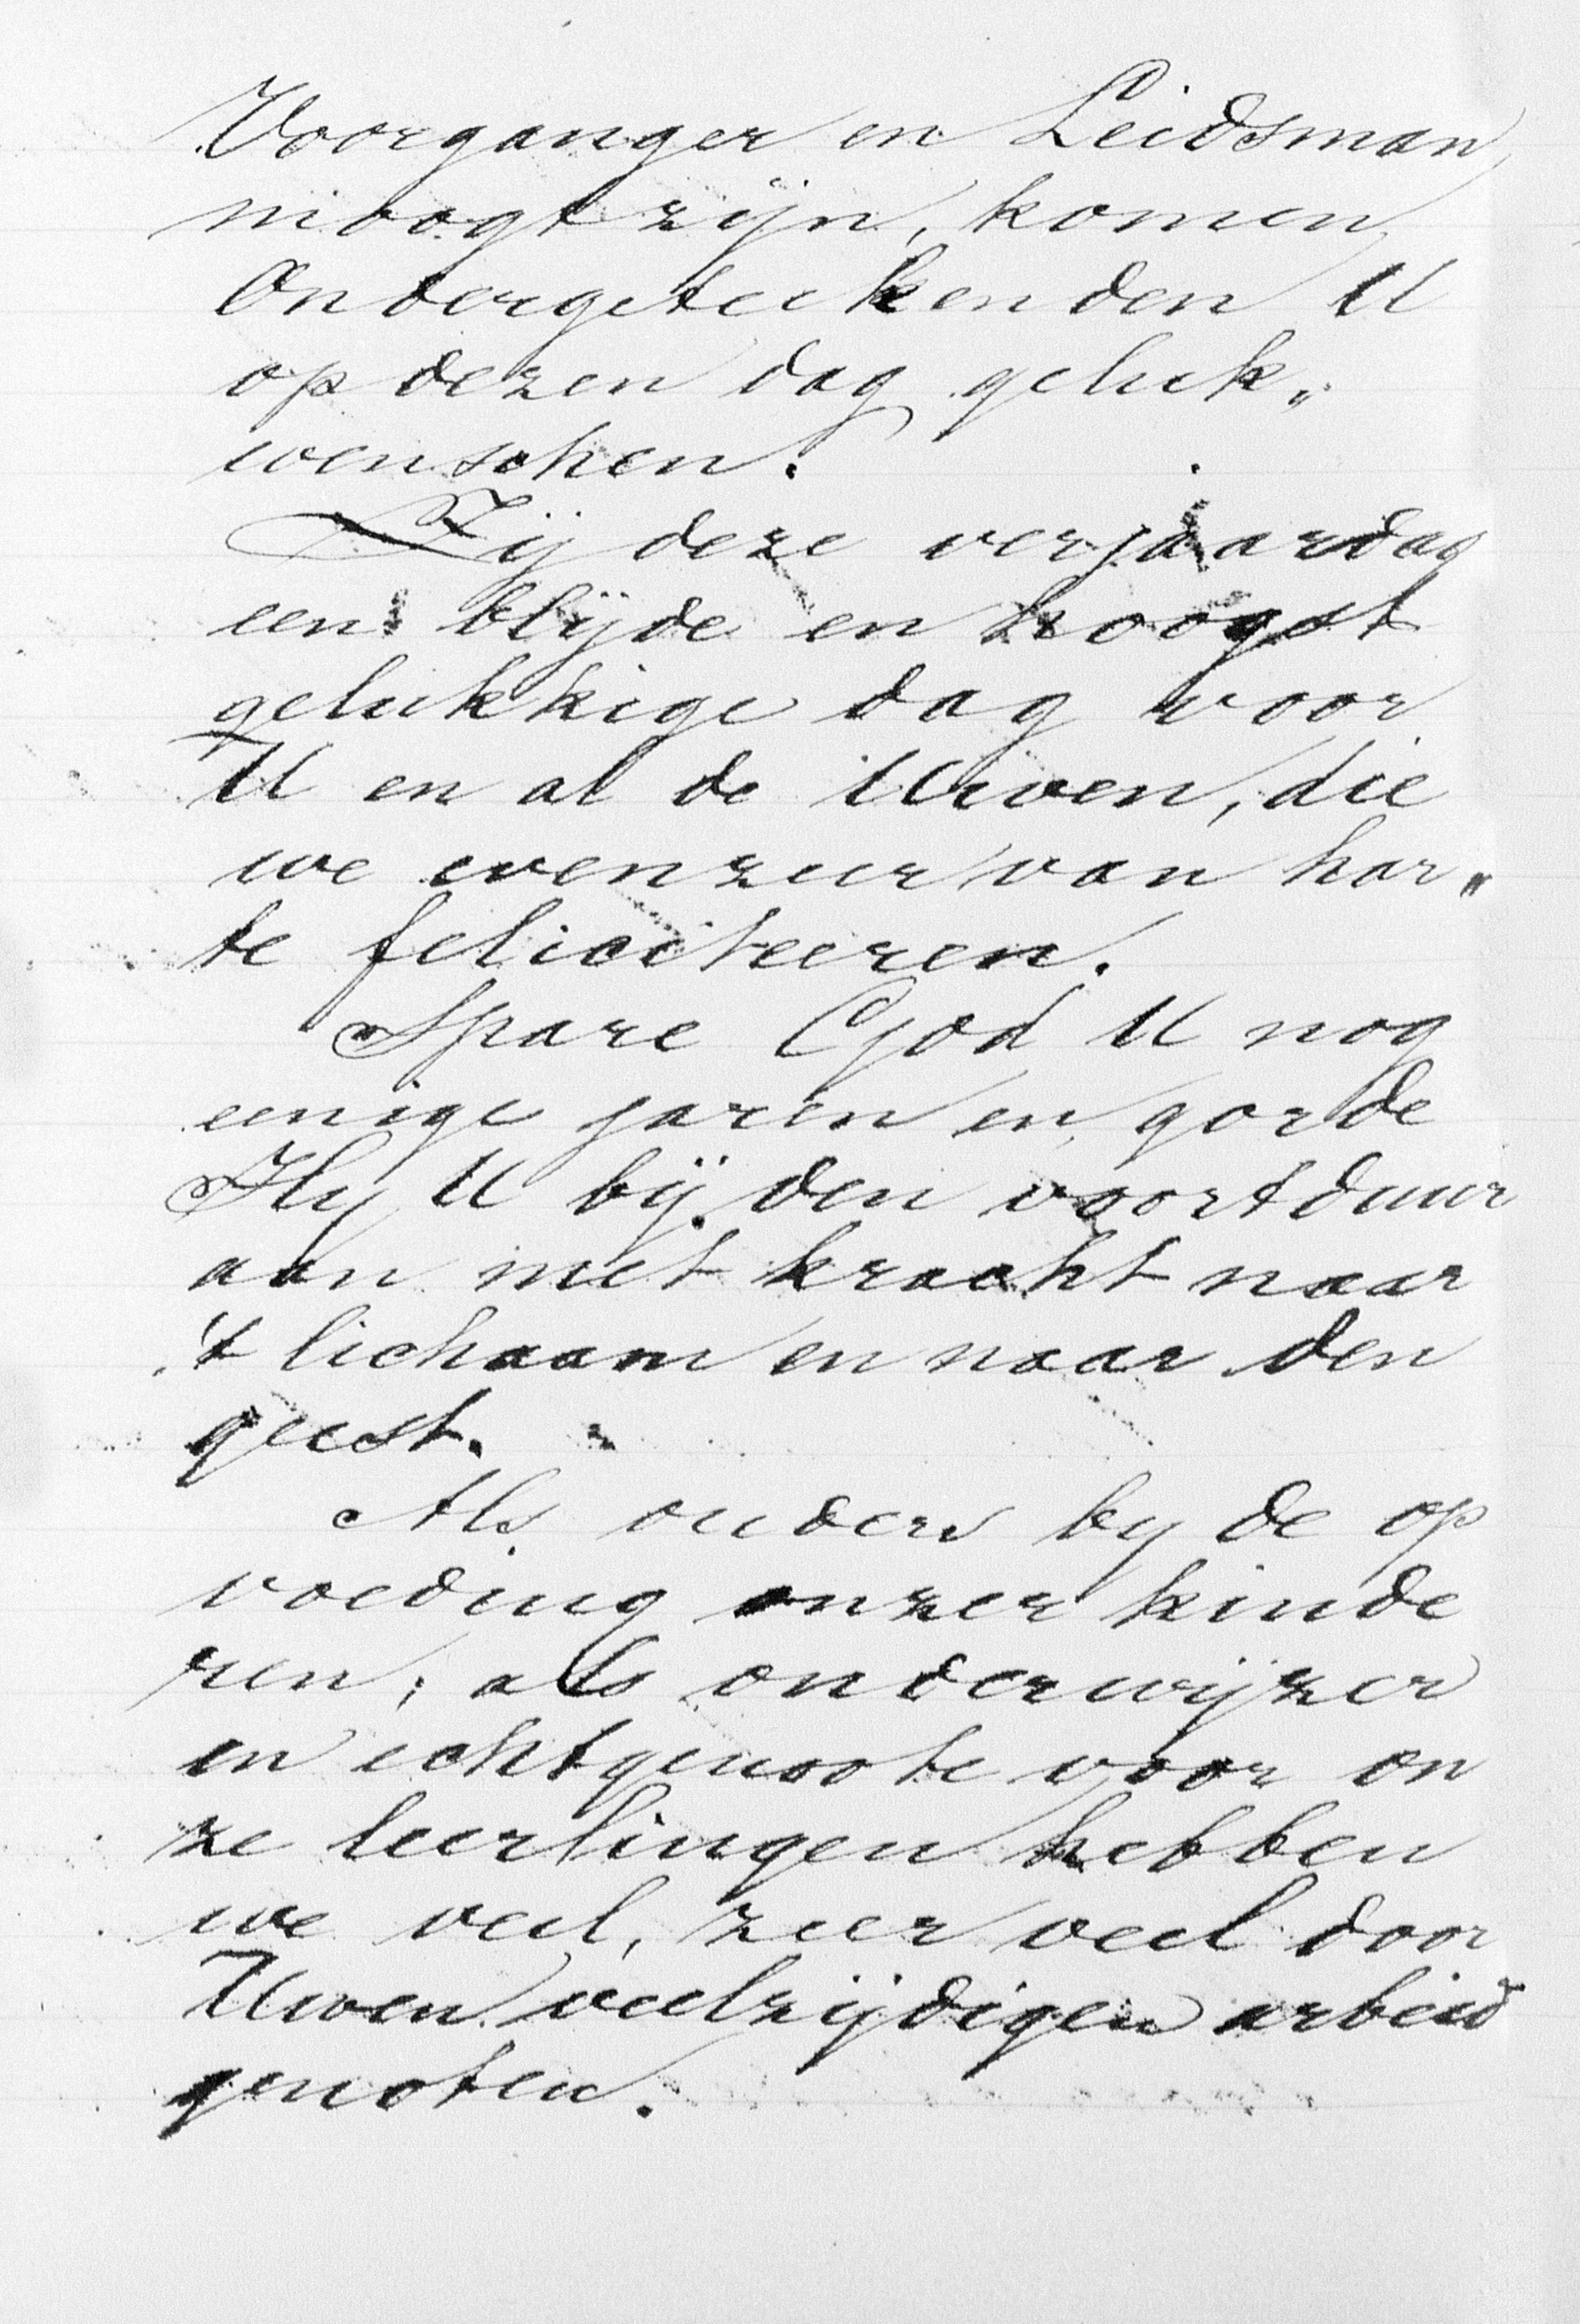 Voorganger en Leidsman
moogt zijn, komen
Ondergeteekenden U
op dezen dag geluk„
wenschen.
Zij deze verjaardag
een blijde en hoogst
gelukkige dag voor
U en al de Uwen, die
we evenzeer van har„
te feliciteeren.
Spare God U nog
eenige jaren en gorde
Hij U bij den voortduur
aan met kracht naar
't lichaam en naar den
geest.
Als ouders by de op
voeding onzer kinde
ren; als onderwijzer
en echtgenoote voor on
ze leerlingen hebben
we veel, zeer veel door
Uwen veelzijdigen arbeid
genoten.